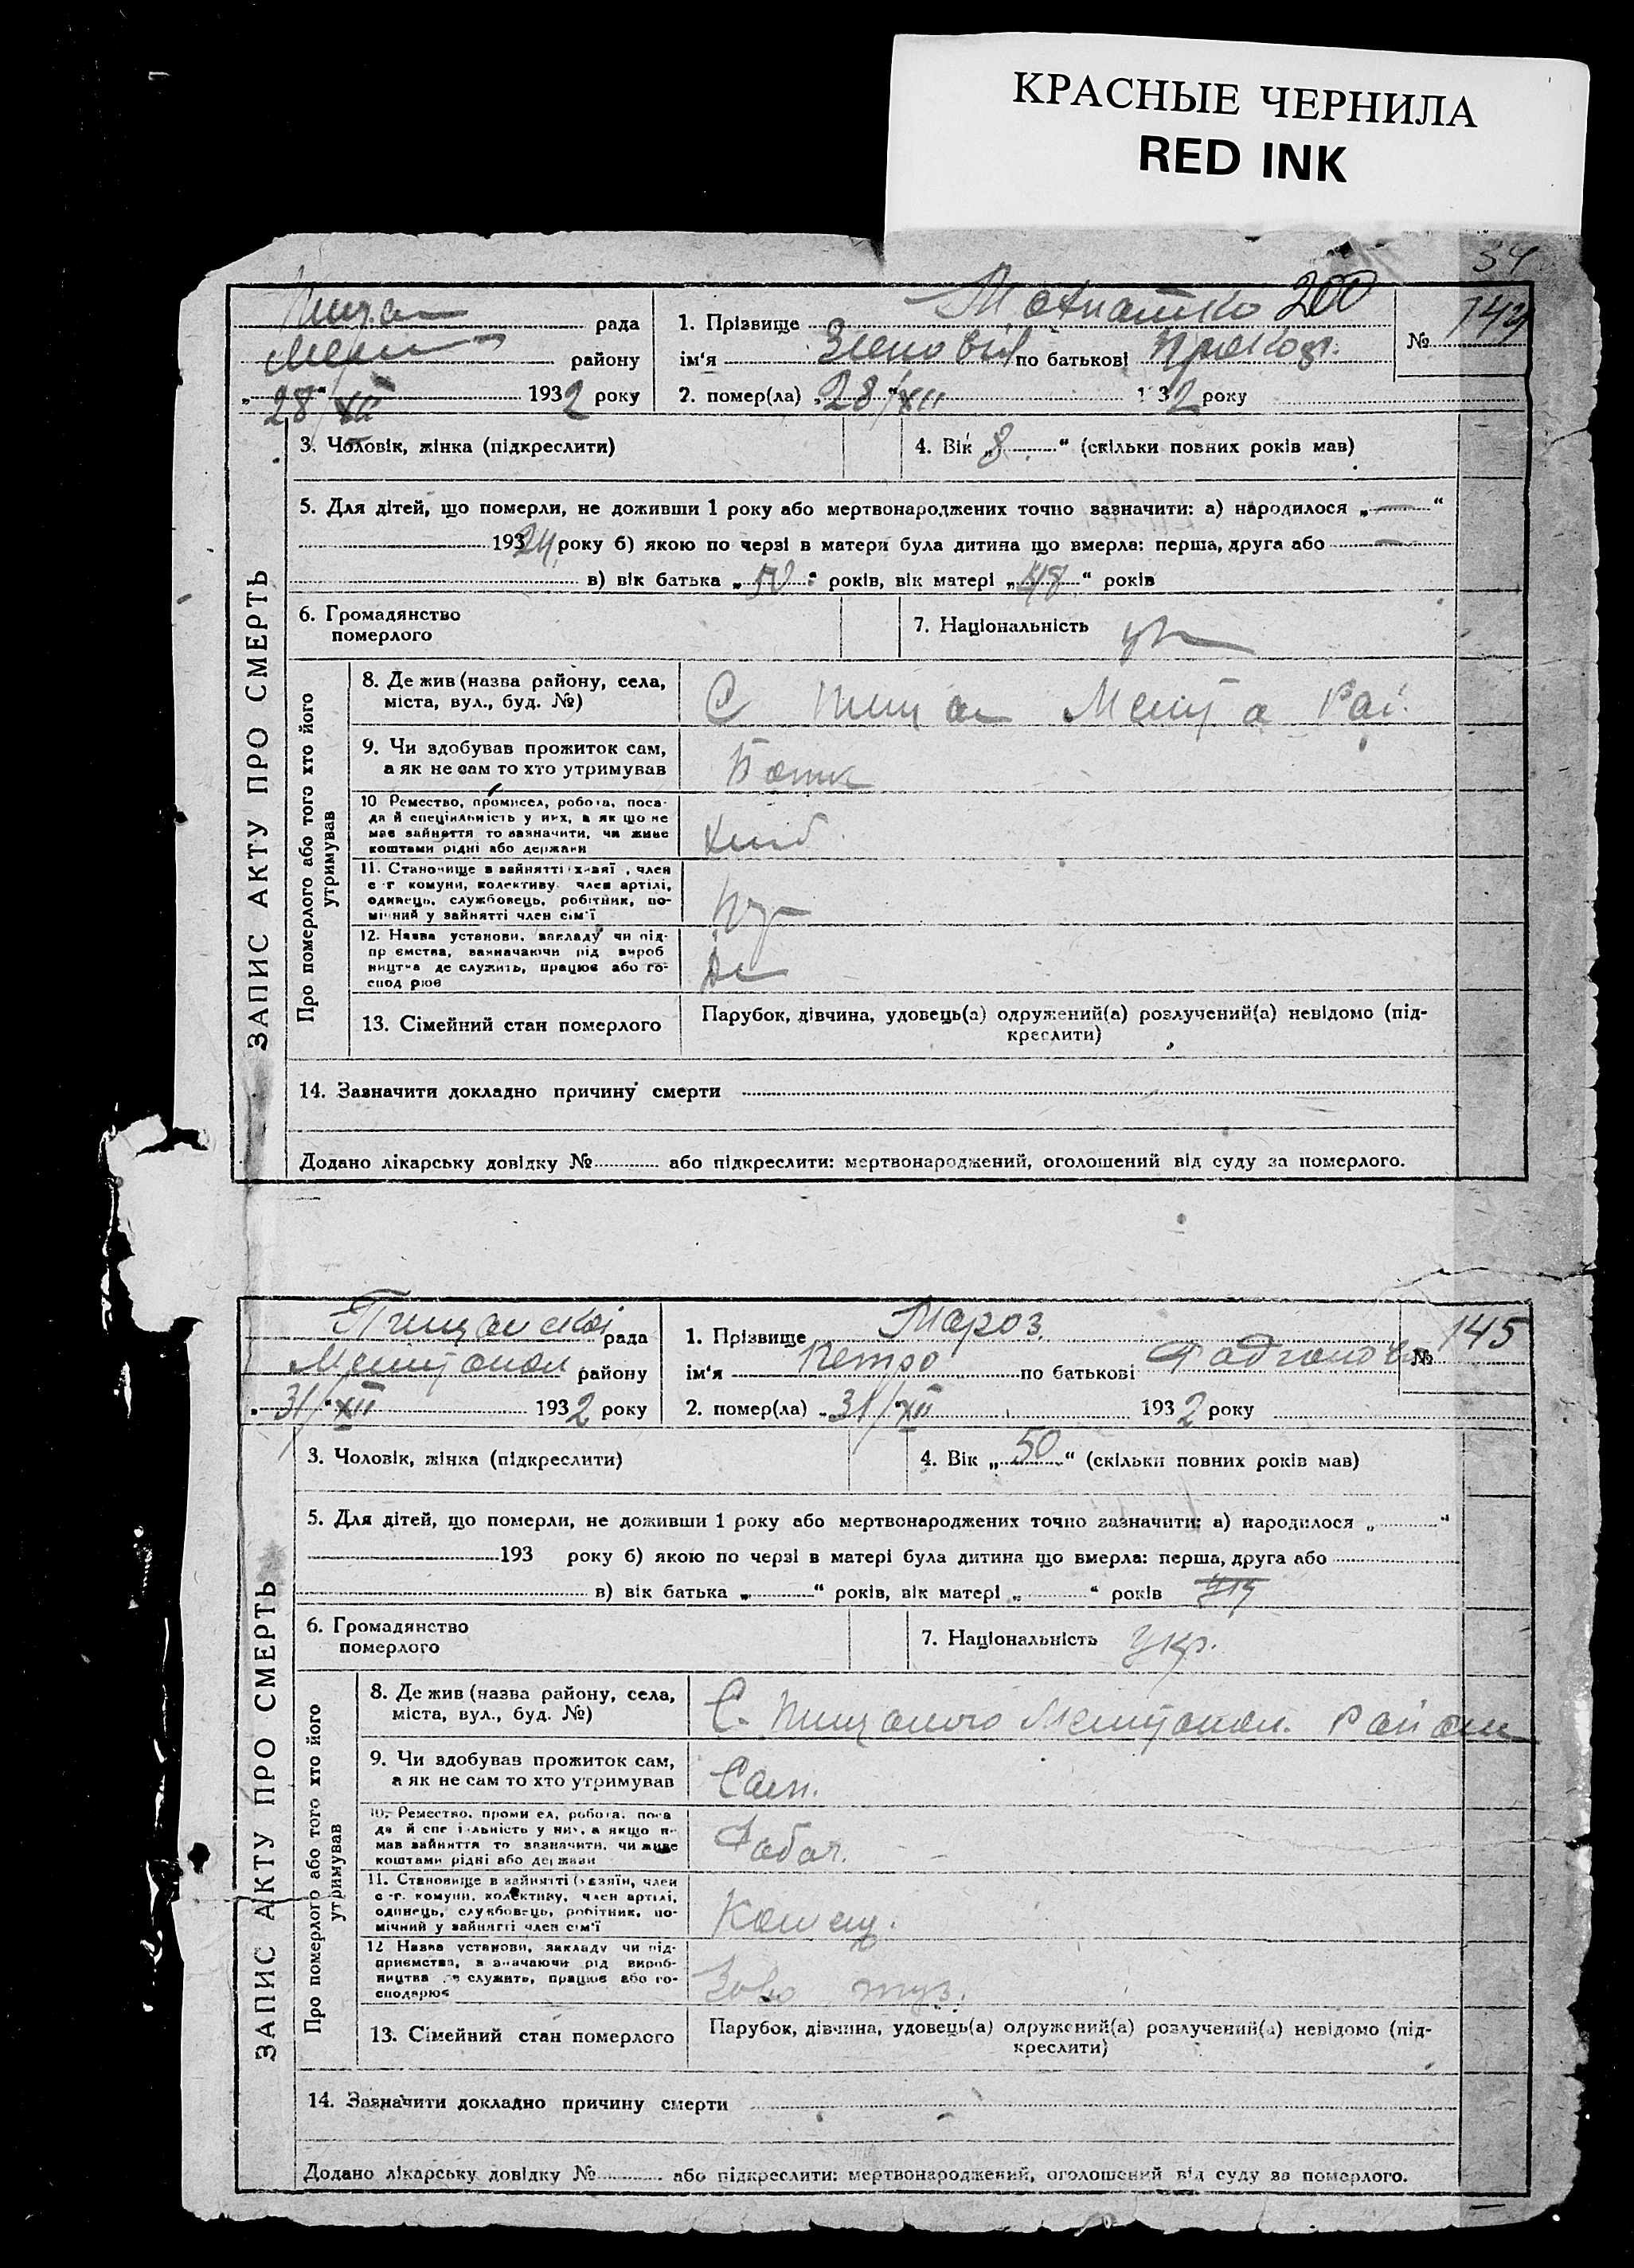 КРАСНЫЕ ЧЕРНИЛА
RED INK
34
рада 1. Прізвище 200
району ім'я по батькові № 144
„28/XII“ 1932 року 2. помер(ла) „28/XII“ 1932 року
3. Чоловік, жінка (підкреслити) 4. Вік „8“ (скільки повних років мав)
5. Для дітей, що померли, не доживши 1 року або мертвонароджених точно зазначити: а) народилося „—“
19324 року б) якою по черзі в матери була дитина що вмерла: перша, друга або —
в) вік батька „50“ років, вік матері „48“ років
6. Громадянство
померлого
7. Національність ук
ЗАПИС АКТУ ПРО СМЕРТЬ
Про померлого або того хто його
утримував
8. Де жив (назва району, села,
міста, вул., буд. №)
С Пищан Меліт а Рай.
9. Чи здобував прожиток сам,
а як не сам то хто утримував
Батьк
10 Ремество, промисел, робота, поса-
да й спеціяльність у них, а як що не
має зайняття то зазначити, чи живе
коштами рідні або держави
Хліб
11. Становище в зайнятті хазяї , член
с-г комуни, колективу член артілі,
одинець, службовець, робітник, по-
мічний у зайнятті член сім'ї
12. Назва установи, закладу чи під-
пр ємства, вазначаючи рід вироб
ництва де служить, працює або го-
спод рює
13. Сімейний стан померлого
Парубок, дівчина, удовець(а) одружений(а) розлучений(а) невідомо (під-
креслити)
14. Зазначити докладно причину смерти
Додано лікарську довідку № або підкреслити: мертвонароджений, оголошений від суду за померлого.
Пищанскої рада 1. Прізвище Мороз
району ім'я Петро по батькові № 145
„31/XII 1932 року 2. помер(ла) „31/XII“ 1932 року
3. Чоловік, жінка (підкреслити) 4. Вік „50“ (скільки повних років мав)
5. Для дітей, що померли, не доживши 1 року або мертвонароджених точно зазначити: а) народилося „ “
193 року б) якою по черзі в матері була дитина що вмерла: перша, друга або
в) вік батька „ “ років, вік матері „ “ років
6. Громадянство
померлого
7. Національність Укр.
ЗАПИС АКТУ ПРО СМЕРТЬ
Про померлого або того хто його
утримував
8. Де жив (назва району, села,
міста, вул., буд. №)
С. Пищаного Мелітопол. Район
9. Чи здобував прожиток сам,
а як не сам то хто утримував
Сам.
10. Ремество, проми ел, робота, поса
да й спе іяльність у них, а якщо не
має зайняття то зазначити, чи живе
коштами рідні або держави
11. Становище в зайнятті (хазяїн, член
с-г. комуни, колективу, член артілі,
одинець, службовець, робітник, по-
мічний у зайнятті член сім'ї
12 Назва установи, закладу чи під-
приємства, взначаючи рід вироб-
ництва де служить, працює або го-
сподарює
13. Сімейний стан померлого
Парубок, дівчина, удовець(а) одружений(а) розлучений(а) невідомо (під-
креслити)
14. Зазначити докладно причину смерти
Додано лікарську довідку № або підкреслити: мертвонароджений, оголошений від суду за померлого.